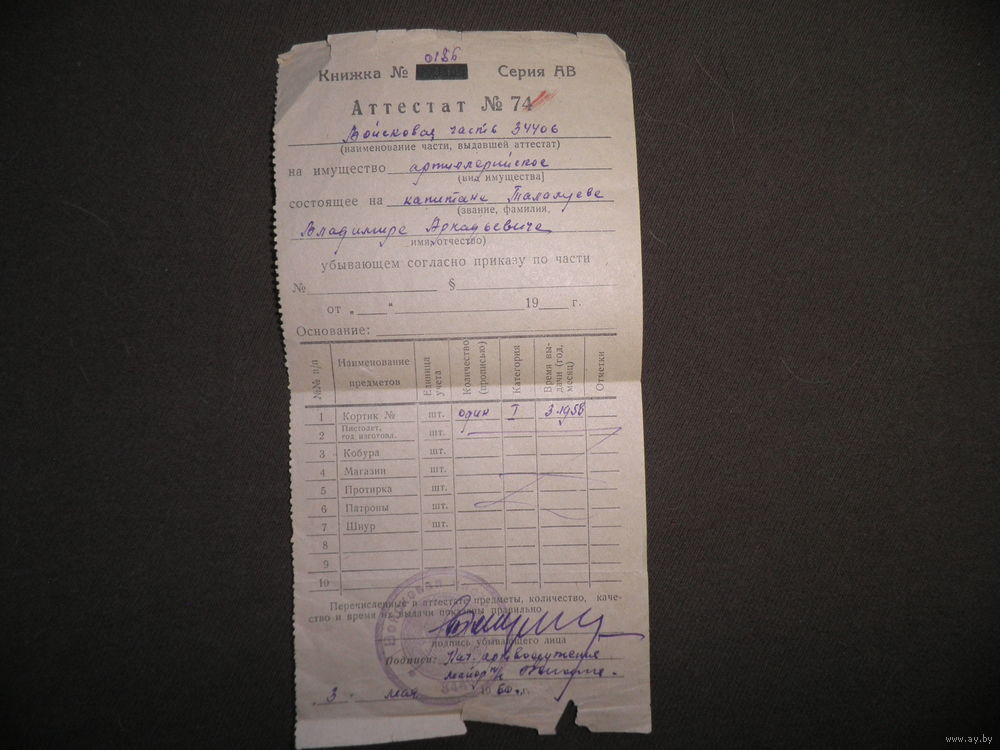 Книжка № 0186 Серия АВ
Аттестат № 74
Войсковая часть 34406
(наименование части, выдавшей аттестат)
на имущество артиллерийское
(вид имущества)
состоящее на капитане Талалуеве
(звание, фамилия,
Владимире Аркадьевиче
имя, отчество)
убывающем согласно приказу по части
№ §
от „ “ 19 г.
Основание:
№№ п/п Наименование предметов Единица учета Количество (прописью) Категория Время выдачи (год, месяц) Отметки
1 Кортик № шт. один I 3.1958
2 Пистолет, год изготовл. шт.
3 Кобура шт.
4 Магазин шт.
5 Протирка шт.
6 Патроны шт.
7 Шнур шт.
8
9
10
Перечисленные в аттестате предметы, количество, каче-
ство и время их выдачи показаны правильно
подпись убывающего лица
Подписи: Нач. артвооружения
майор
3 мая 1960 г.
www.ay.by